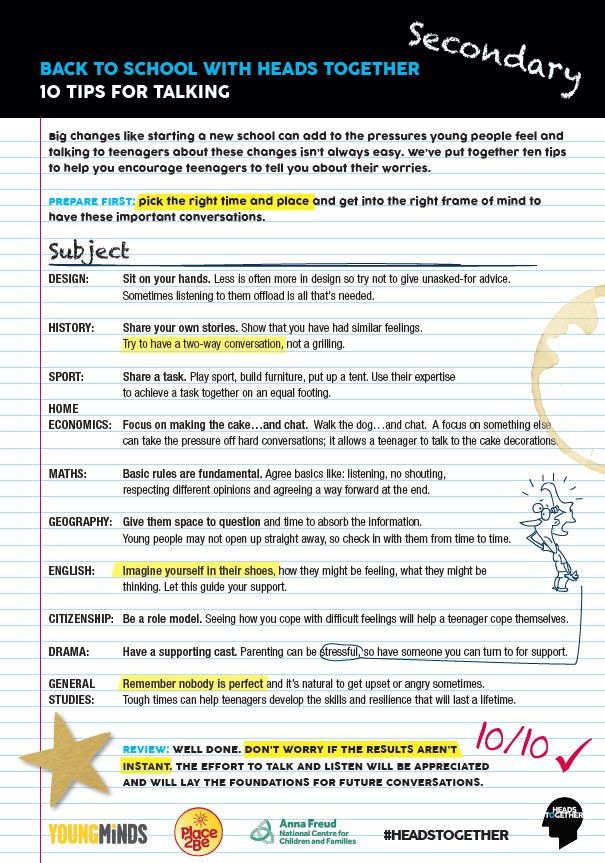 Secondary
BACK TO SCHOOL WITH HEADS TOGETHER
10 TIPS FOR TALKING
Big changes like starting a new school can add to the pressures young people feel and
talking to teenagers about these changes isn't always easy. We've put together ten tips
to help you encourage teenagers to tell you about their worries.
PREPARE FIRST: pick the right time and place and get into the right frame of mind to
have these important conversations.
Subject
DESIGN: Sit on your hands. Less is often more in design so try not to give unasked-for advice.
Sometimes listening to them offload is all that's needed.
HISTORY: Share your own stories. Show that you have had similar feelings.
Try to have a two-way conversation, not a grilling.
SPORT: Share a task. Play sport, build furniture, put up a tent. Use their expertise
to achieve a task together on an equal footing.
HOME
ECONOMICS: Focus on making the cake...and chat. Walk the dog...and chat. A focus on something else
can take the pressure off hard conversations; it allows a teenager to talk to the cake decorations.
MATHS: Basic rules are fundamental. Agree basics like: listening, no shouting,
respecting different opinions and agreeing a way forward at the end.
GEOGRAPHY: Give them space to question and time to absorb the information.
Young people may not open up straight away, so check in with them from time to time.
ENGLISH: Imagine yourself in their shoes, how they might be feeling, what they might be
thinking. Let this guide your support.
CITIZENSHIP: Be a role model. Seeing how you cope with difficult feelings will help a teenager cope themselves.
DRAMA: Have a supporting cast. Parenting can be stressful, so have someone you can turn to for support.
GENERAL Remember nobody is perfect and it's natural to get upset or angry sometimes.
STUDIES: Tough times can help teenagers develop the skills and resilience that will last a lifetime.
REVIEW: WELL DONE. DON'T WORRY IF THE RESULTS AREN'T
INSTANT. THE EFFORT TO TALK AND LISTEN WILL BE APPRECIATED
AND WILL LAY THE FOUNDATIONS FOR FUTURE CONVERSATIONS.
10/10
YOUNGMiNDS
Place
2Be
Anna Freud
National Centre for
Children and Families
#HEADSTOGETHER
HEADS
TOGETHER